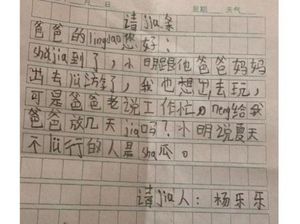 月 日 星期 天气
请jia条
爸爸的lingdao您好：
shujia到了，小明跟他爸爸妈妈
出去lü游了，我也想出去玩，
可是爸爸老说工作忙。neng给我
爸爸放几天jia吗？小明说夏天
不lü行的人是sha瓜。
请jia人：杨乐乐